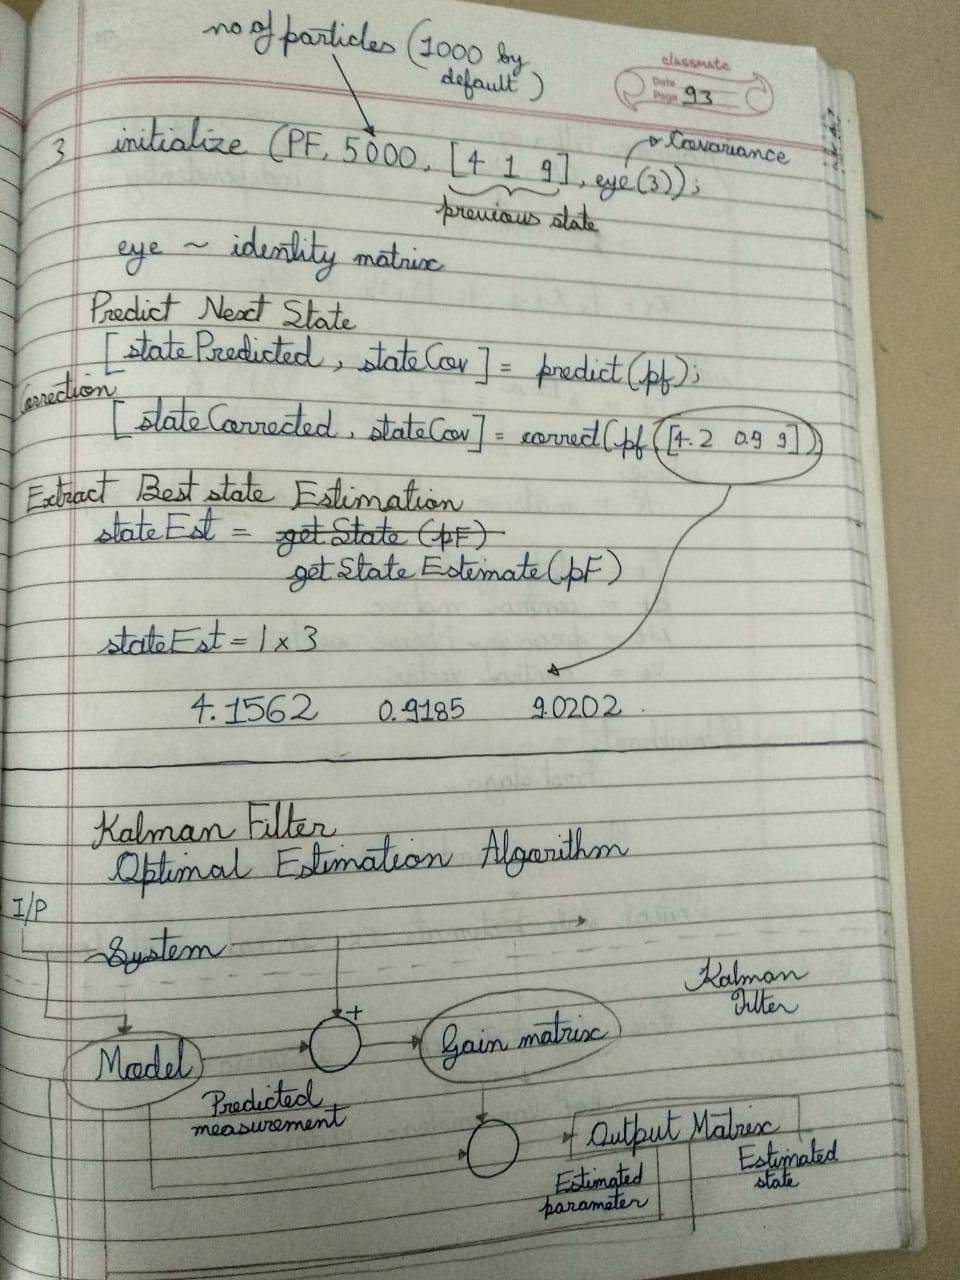 no of particles (1000 by default)
classmate
Date
Page 93
3 initialize (PF, 5000, [4 1 9], eye(3));
Covariance
previous state
eye ~ identity matrix
Predict Next State
[statePredicted, stateCov] = predict(pf);
Correction
[stateCorrected, stateCov] = correct(pf, [4.2 0.9 9])
Extract Best state Estimation
stateEst = getState(pF)
getStateEstimate(pF)
stateEst = 1 x 3
4.1562 0.9185 9.0202
Kalman Filter
Optimal Estimation Algorithm
I/P
System
Kalman Filter
+
Model
Gain matrix
Predicted measurement
Output Matrix
Estimated parameter
Estimated state